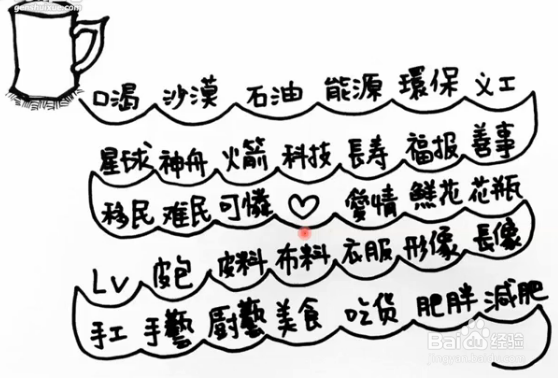 genshuixue.com
口渴 沙漠 石油 能源 環保 义工
星球 神舟 火箭 科技 長寿 福报 善事
移民 难民 可憐 愛情 鮮花 花瓶
LV 皮包 皮料 布料 衣服 形像 長像
手工 手藝 廚藝 美食 吃货 肥胖 減肥
Baidu经验
jingyan.baidu.com